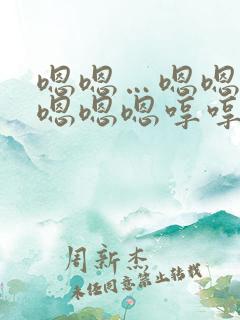 嗯嗯…嗯嗯
嗯嗯嗯哼哼
周新杰
未经同意禁止转载